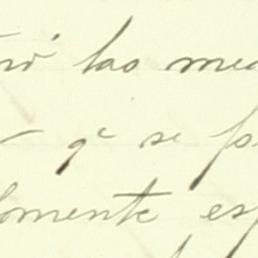 tró las med
- qe se p
lomente es